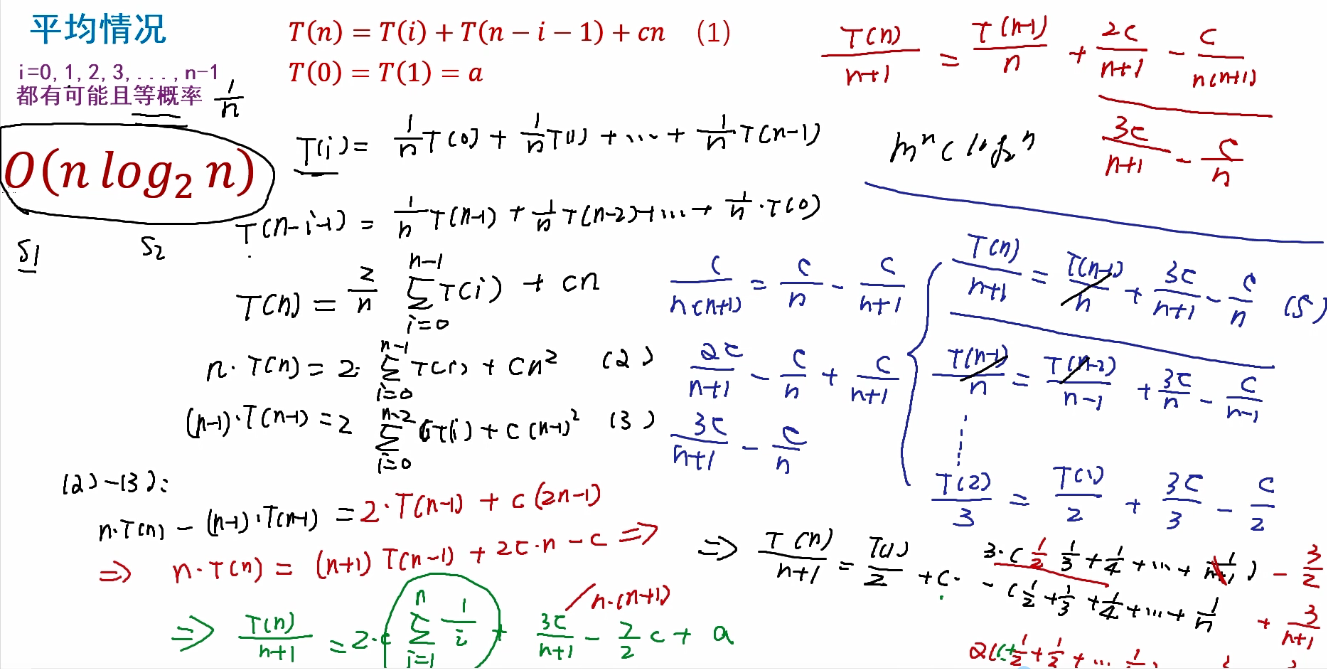 平均情况
i=0,1,2,3,...,n-1
都有可能且等概率 1/n
O(n log₂ n)
S1 S2
T(n) = T(i) + T(n − i − 1) + cn (1)
T(0) = T(1) = a
T(i) = 1/n T(0) + 1/n T(1) + ... + 1/n T(n-1)
T(n-i-1) = 1/n T(n-1) + 1/n T(n-2) + ... + 1/n · T(0)
T(n) = 2/n ∑_{i=0}^{n-1} T(i) + cn
n · T(n) = 2 · ∑_{i=0}^{n-1} T(i) + cn² (2)
(n-1) · T(n-1) = 2 ∑_{i=0}^{n-2} T(i) + c(n-1)² (3)
(2)-(3):
n·T(n) - (n-1)·T(n-1) = 2·T(n-1) + c(2n-1)
⇒ n·T(n) = (n+1) T(n-1) + 2c·n - c ⇒
⇒ T(n)/(n+1) = 2·c ∑_{i=1}^{n} 1/i + 3c/(n+1) - 7/2 c + a
n·(n+1)
T(n)/(n+1) = T(n-1)/n + 2c/(n+1) - c/(n(n+1))
3c/(n+1) - c/n
c/(n(n+1)) = c/n - c/(n+1)
2c/(n+1) - c/n + c/(n+1)
3c/(n+1) - c/n
T(n)/(n+1) = T(n-1)/n + 3c/(n+1) - c/n (5)
T(n-1)/n = T(n-2)/(n-1) + 3c/n - c/(n-1)
T(2)/3 = T(1)/2 + 3c/3 - c/2
⇒ T(n)/(n+1) = T(1)/2 + c· 3·(1/2 1/3 + 1/4 + ... + 1/(n+1)) - 3/2
- (1/2 + 1/3 + 1/4 + ... + 1/n + 3/(n+1)